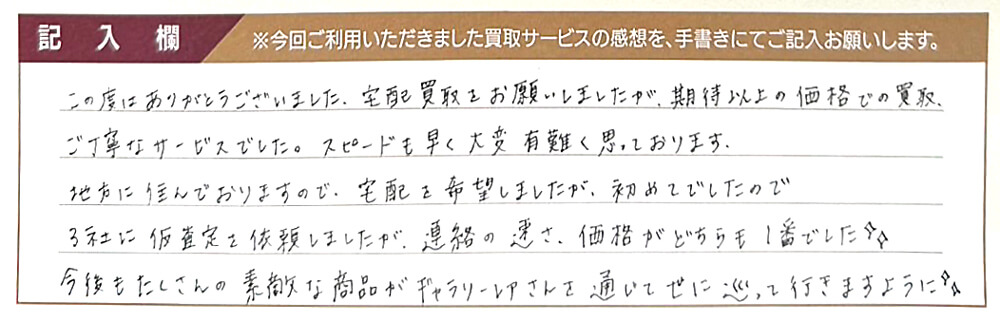 記入欄
※今回ご利用いただきました買取サービスの感想を、手書きにてご記入お願いします。
この度はありがとうございました。宅配買取をお願いしましたが、期待以上の価格での買取、
ご丁寧なサービスでした。スピードも早く大変有難く思っております。
地方に住んでおりますので、宅配を希望しましたが、初めてでしたので
3社に仮査定を依頼しましたが、連絡の速さ、価格がどちらも1番でした✧✧
今後もたくさんの素敵な商品がギャラリーレアさんを通じてぜに巡って行きますように✧✧